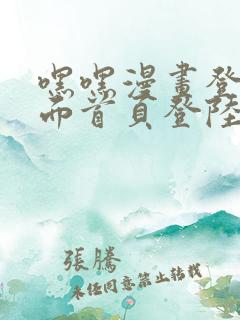 嘿嘿漫畫登
面首頁登陸
張騰
未任同意禁止轉載